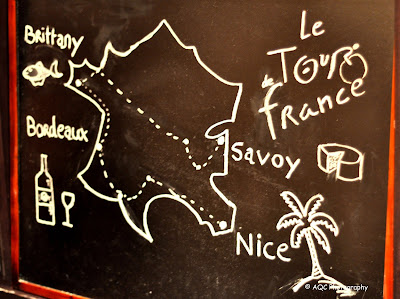 Brittany
Le
Tour
de
france
Bordeaux
Savoy
Nice
© AQC Photography